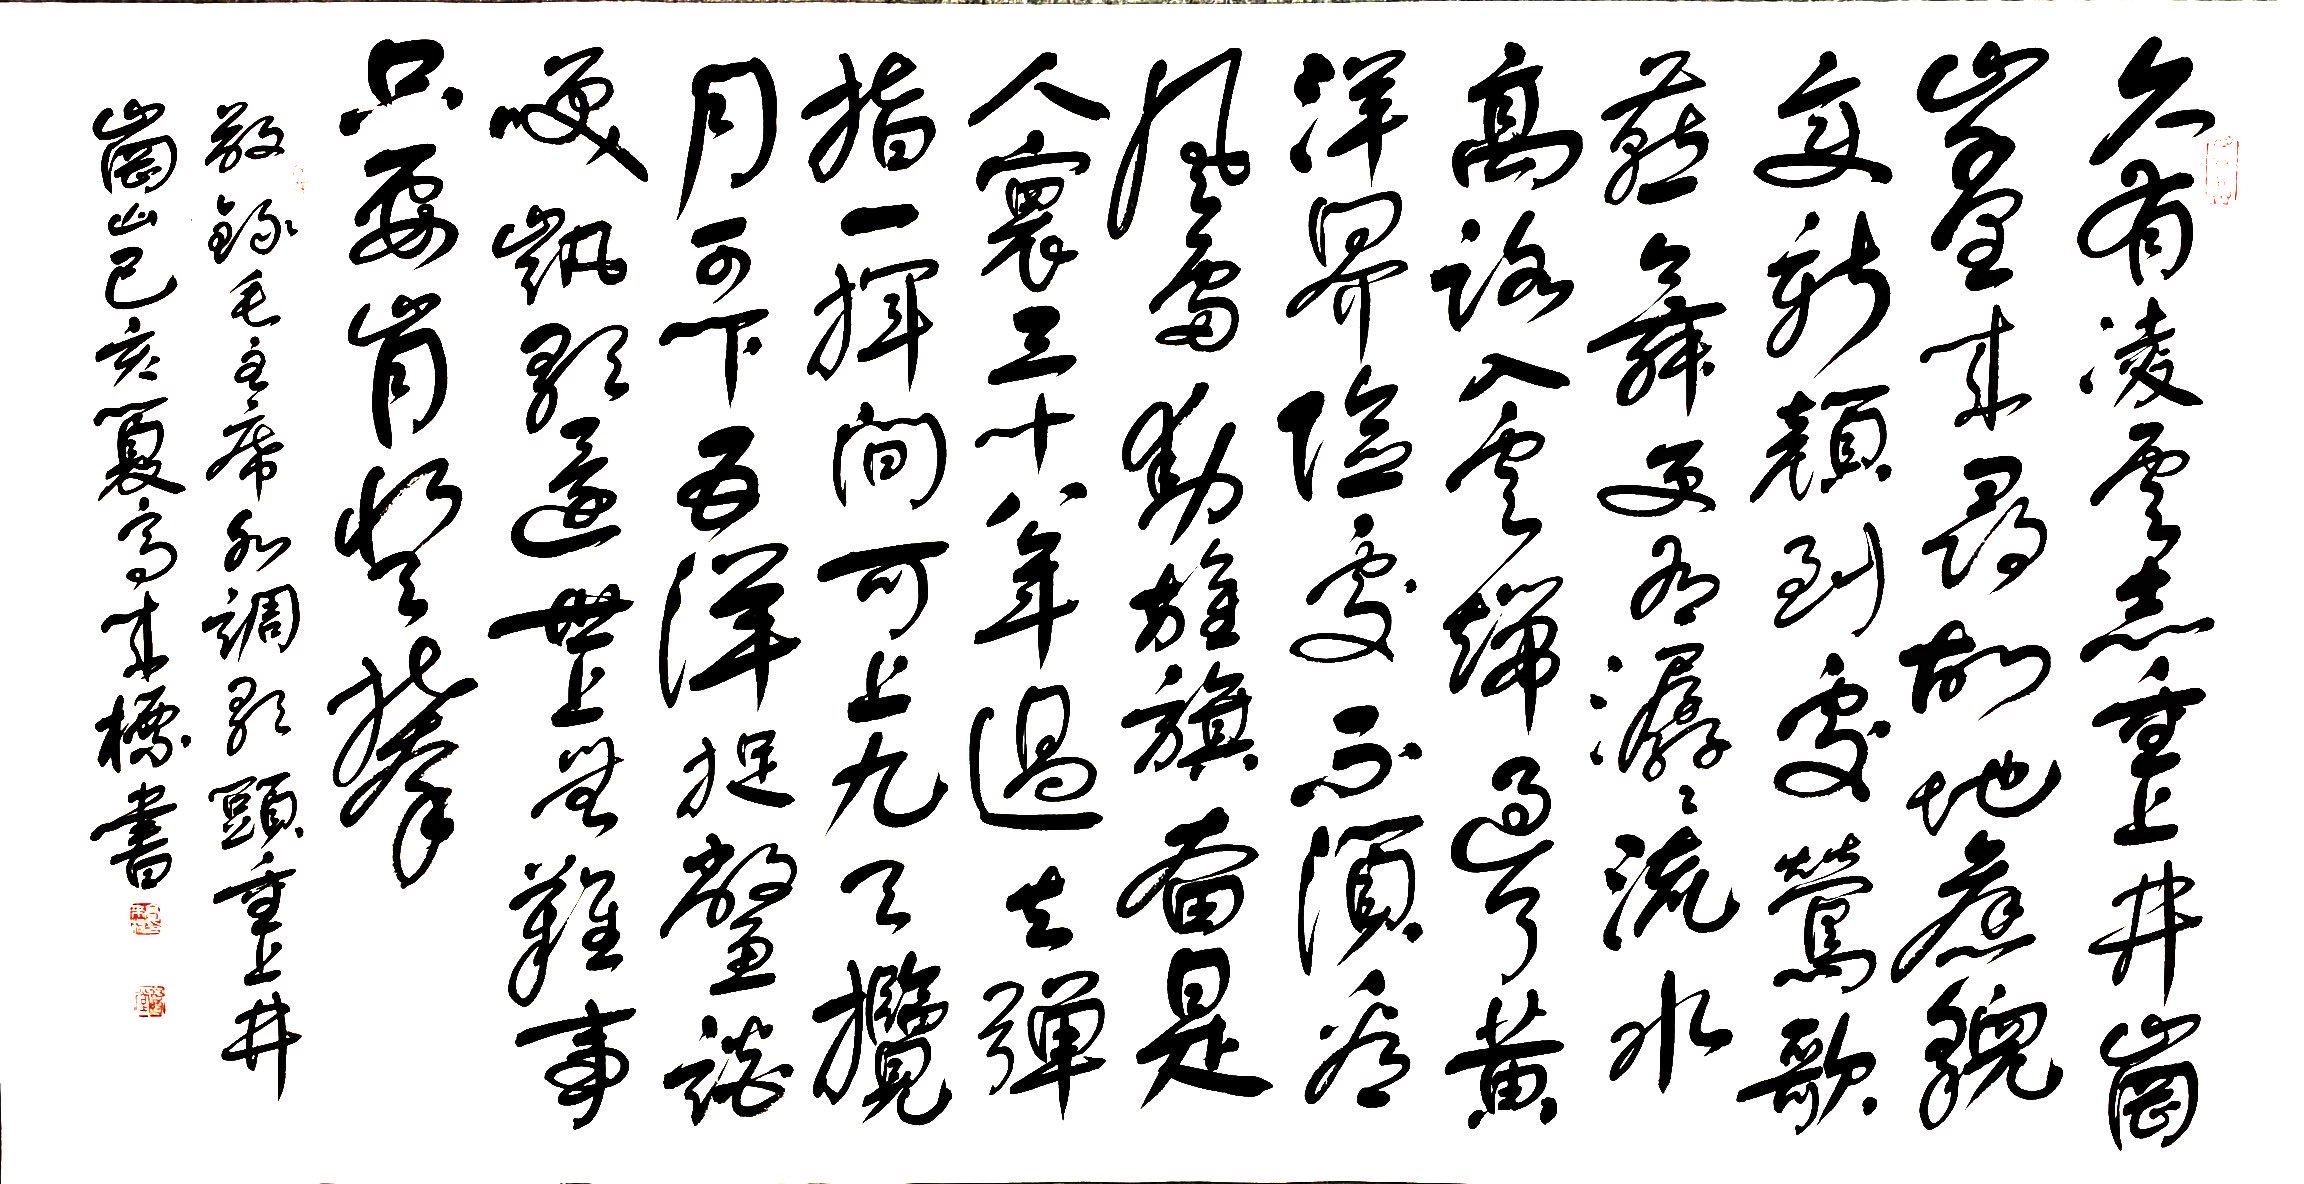 久有凌雲志重上井崗
山千里来尋故地舊貌
变新顔到處鶯歌
燕舞更有潺〻流水
高路入雲端過了黄
洋界險處不須看
風雷動旌旗奮是
人寰三十八年過去弹
指一揮間可上九天攬
月可下五洋捉鳖談
咲凱歌還世上無難事
只要肯登攀
敬録毛主席水調歌頭重上井
崗山己亥夏高来標書